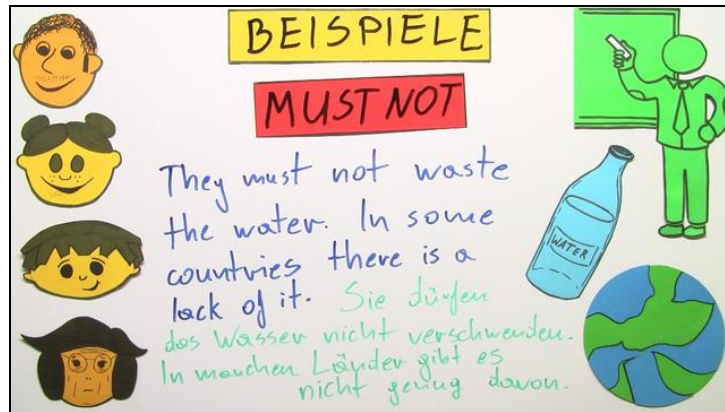 BEISPIELE
MUST NOT
They must not waste
the water. In some
countries there is a
lack of it. Sie dürfen
das Wasser nicht verschwenden.
In manchen Länder gibt es
nicht genug davon.
WATER